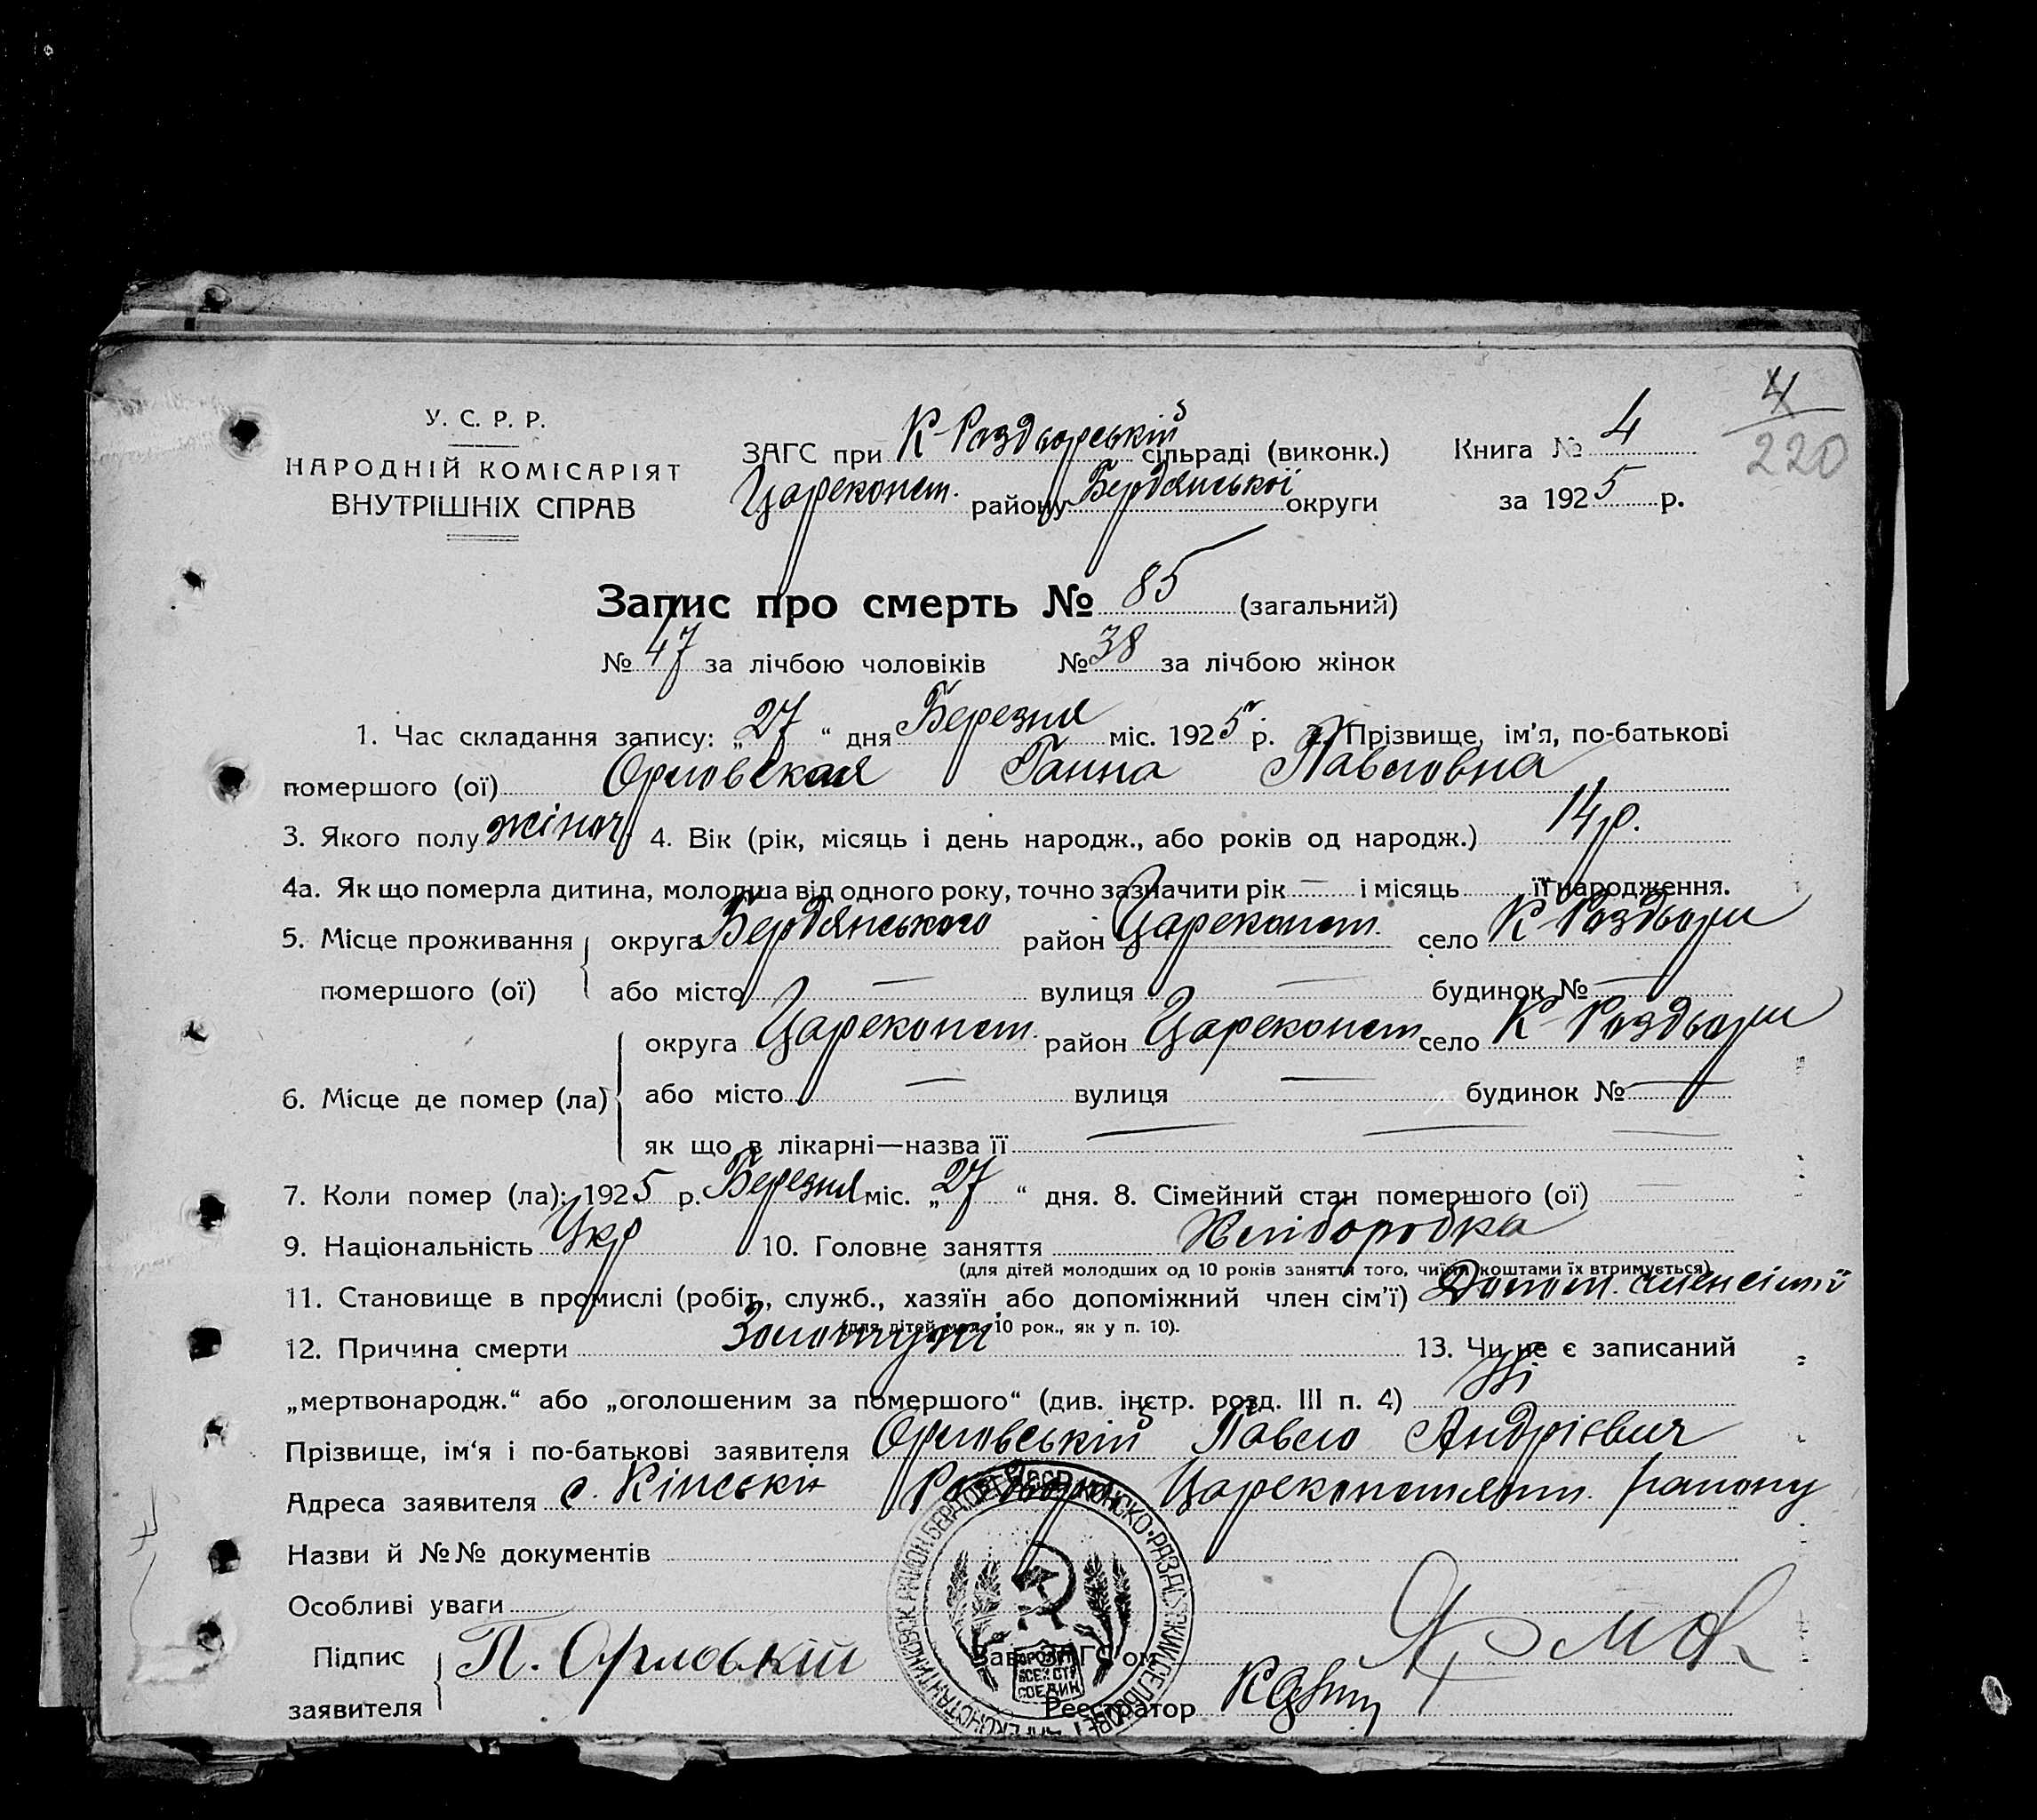 4
220
У. С. Р. Р.
НАРОДНІЙ КОМІСАРІЯТ
ВНУТРІШНІХ СПРАВ
ЗАГС при К-Роздьорській сільраді (виконк.)
Цареконст. району Бердянської округи
Книга № 4
за 1925 р.
Запис про смерть № 85 (загальний)
№ 47 за лічбою чоловіків № 38 за лічбою жінок
1. Час складання запису: „27“ дня Березня міс. 1925 р. 2. Прізвище, ім'я, по-батькові
помершого (ої) Орловская Ганна Павловна
3. Якого полу жіноч 4. Вік (рік, місяць і день народж., або років од народж.) 14 р.
4а. Як що померла дитина, молодша від одного року, точно зазначити рік — і місяць її народження.
5. Місце проживання помершого (ої) округа Бердянського район Цареконст. село К-Роздьори
або місто — вулиця — будинок № —
6. Місце де помер (ла) округа Цареконст. район Цареконст село К-Роздьори
або місто — вулиця — будинок № —
як що в лікарні—назва її — — —
7. Коли помер (ла): 1925 р. Березня міс. „27“ дня. 8. Сімейний стан помершого (ої) —
9. Національність Укр 10. Головне заняття Хліборобка
(для дітей молодших од 10 років заняття того, чиїми коштами їх втримується)
11. Становище в промислі (робіт., служб., хазяїн або допоміжний член сім'ї) Допом. член сімї
(для дітей мол. 10 рок., як у п. 10).
12. Причина смерти Золотуха 13. Чи не є записаний
„мертвонародж.“ або „оголошеним за помершого“ (див. інстр. розд. III п. 4) Ні
Прізвище, ім'я і по-батькові заявителя Орловській Павло Андрієвич
Адреса заявителя с. Кінські Роздьори Цареконстянт. району
Назви й №№ документів
Особливі уваги
Підпис заявителя П. Орловькій
Зав. ЗАГС'ом
Реєстратор